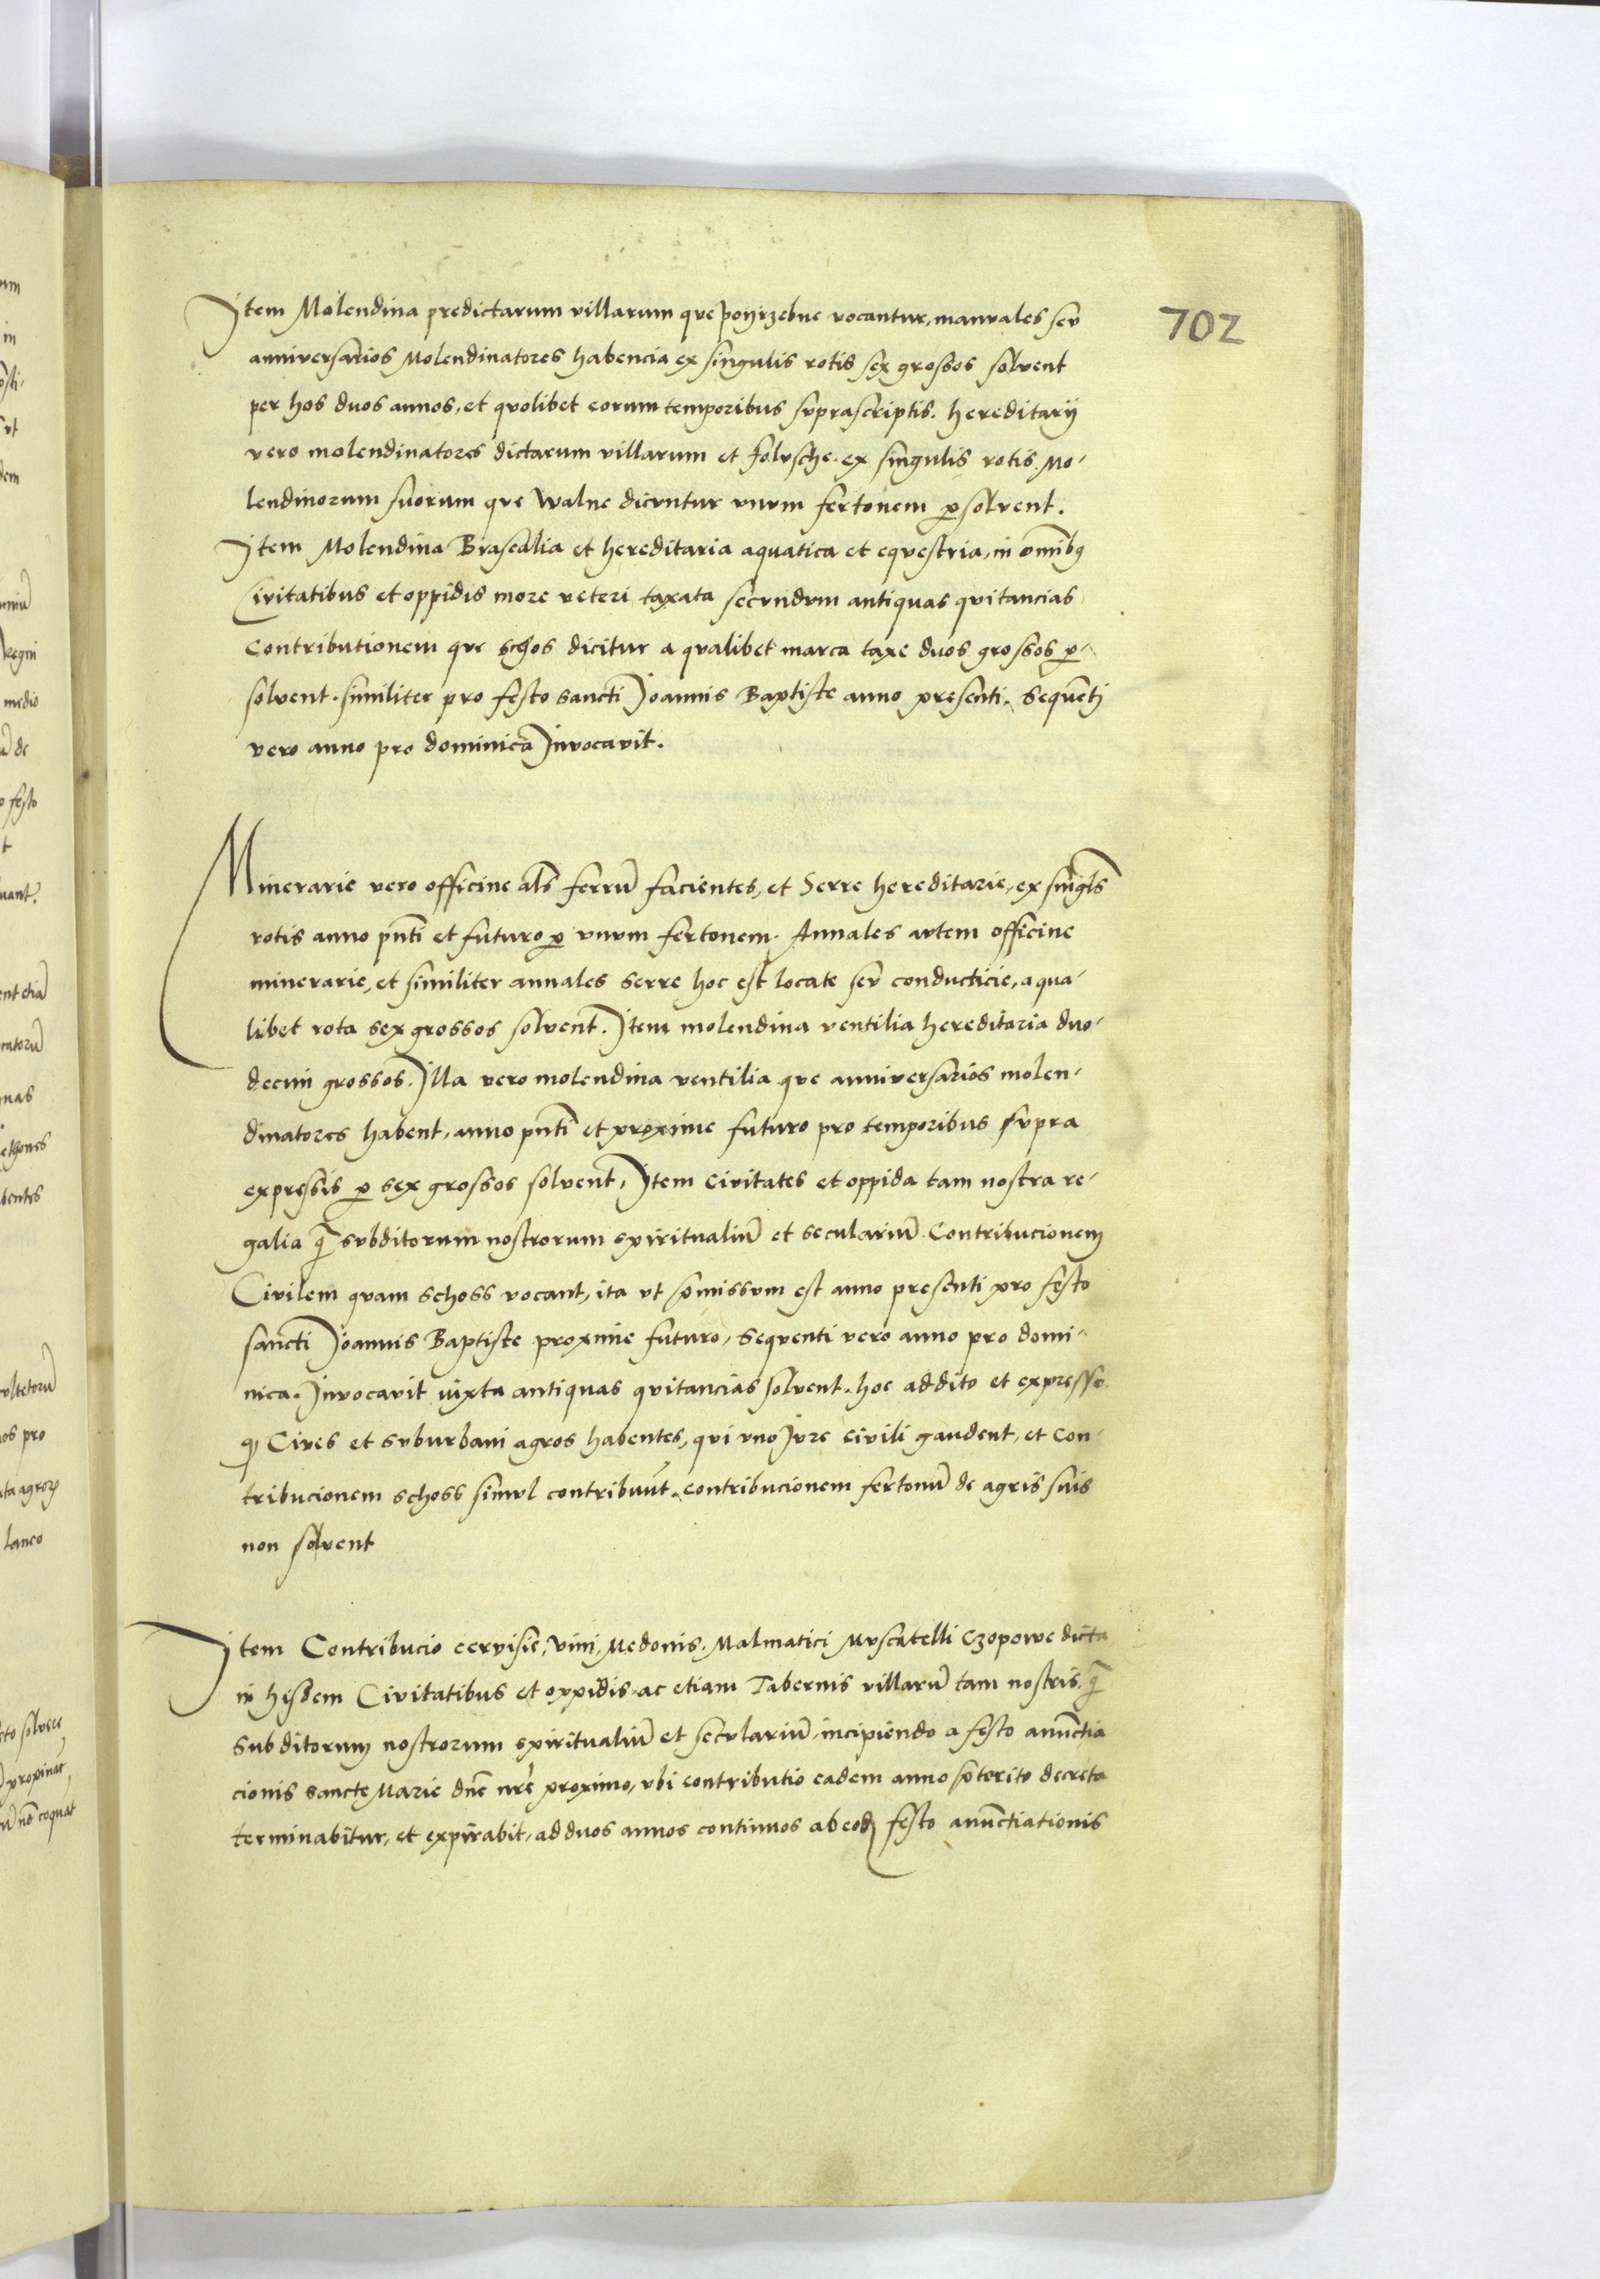 702
Item Molendina predictarum villarum que poyrzebne vocantur, manuales seu
anniversarios Molendinatores habencia ex singulis rotis sex grossos solvent
per hos duos annos, et quolibet eorum temporibus suprascriptis. hereditarij
vero molendinatores dictarum villarum et folusche ex singulis rotis Mo-
lendinorum suorum que walne dicuntur unum fertonem p̱solvent.
Item Molendina Brasealia et hereditaria aquatica et equestria, in om̄ibꝫ
Civitatibus et oppidis more veteri taxata secundum antiquas quitancias
Contributionem que schos dicitur a qualibet marca taxe duos grossos p̱-
solvent. similiter pro festo sancti Joannis Baptiste anno presenti. Sequēti
vero anno pro dominica Invocavit.
Minerarie vero officine al̄s ferrū facientes, et Serre hereditarie, ex singl̄s
rotis anno pn̄ti et futuro p̱ unum fertonem. Annales autem officine
minerarie, et similiter annales serre hoc est locate seu conducticie, a qua-
libet rota sex grossos solvent. Item molendina ventilia hereditaria duo-
decim grossos. Illa vero molendina ventilia que anniversarios molen-
dinatores habent, anno pn̄ti et proxime futuro pro temporibus supra
expressis p̱ sex grossos solvent, Item civitates et oppida tam nostra re-
galia q̄ subditorum nostrorum spiritualiū et seculariū Contribucionem
Civilem quam schoss vocant, ita ut p̄missum est anno presenti pro festo
sancti Joannis Baptiste proxime futuro, sequenti vero anno pro domi-
nica. Invocavit iuxta antiquas quitancias solvent. hoc addito et expresso
ꝙ Cives et suburbani agros habentes, qui uno Jure civili gaudent, et con-
tribucionem schoss simul contribuūt. contribucionem fertonū de agris suis
non solvent
Item Contribucio cervisie, vini, Medonis, Malmatici Muscatelli Czopowe dicta
in hisdem Civitatibus et oppidis ac etiam Tabernis villarū tam nostris, q̄
Subditorum nostrorum spiritualiū et seculariū incipiendo a festo anūctia
cionis sancte Marie dn̄e nr̄e proximo, ubi contributio eadem anno p̄terito decreta
terminabitur, et expirabit, ad duos annos continuos ab eodꝫ festo anūctiationis